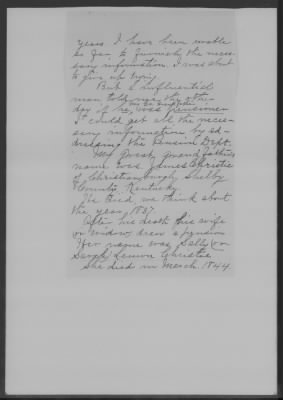 years. I have been unable
so far, to furnish the neces-
sary information. I was about
to give up trying.
But a influential
man told me the other
day if he was pensioner
I could get all the neces-
sary information by ad-
dressing the Pension Dept.
My Great Grand father's
name was James Christie
of Christiansburgh, Shelby
County, Kentucky.
He died, we think about
the year, 1837.
After his death his wife
or widow, drew a pension
Her name was Sally (or
Sarah) Lemon Christie
She died in March 1844.